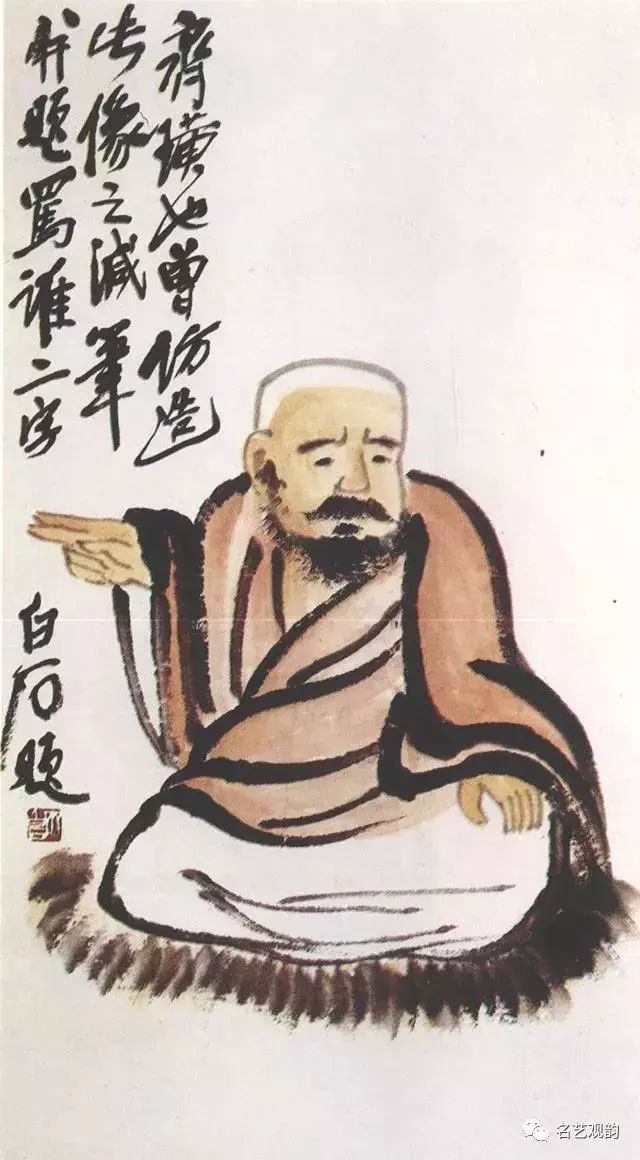 齊璜也曾仿造
此像之减筆
并題罵誰二字
白石題
名艺观韵